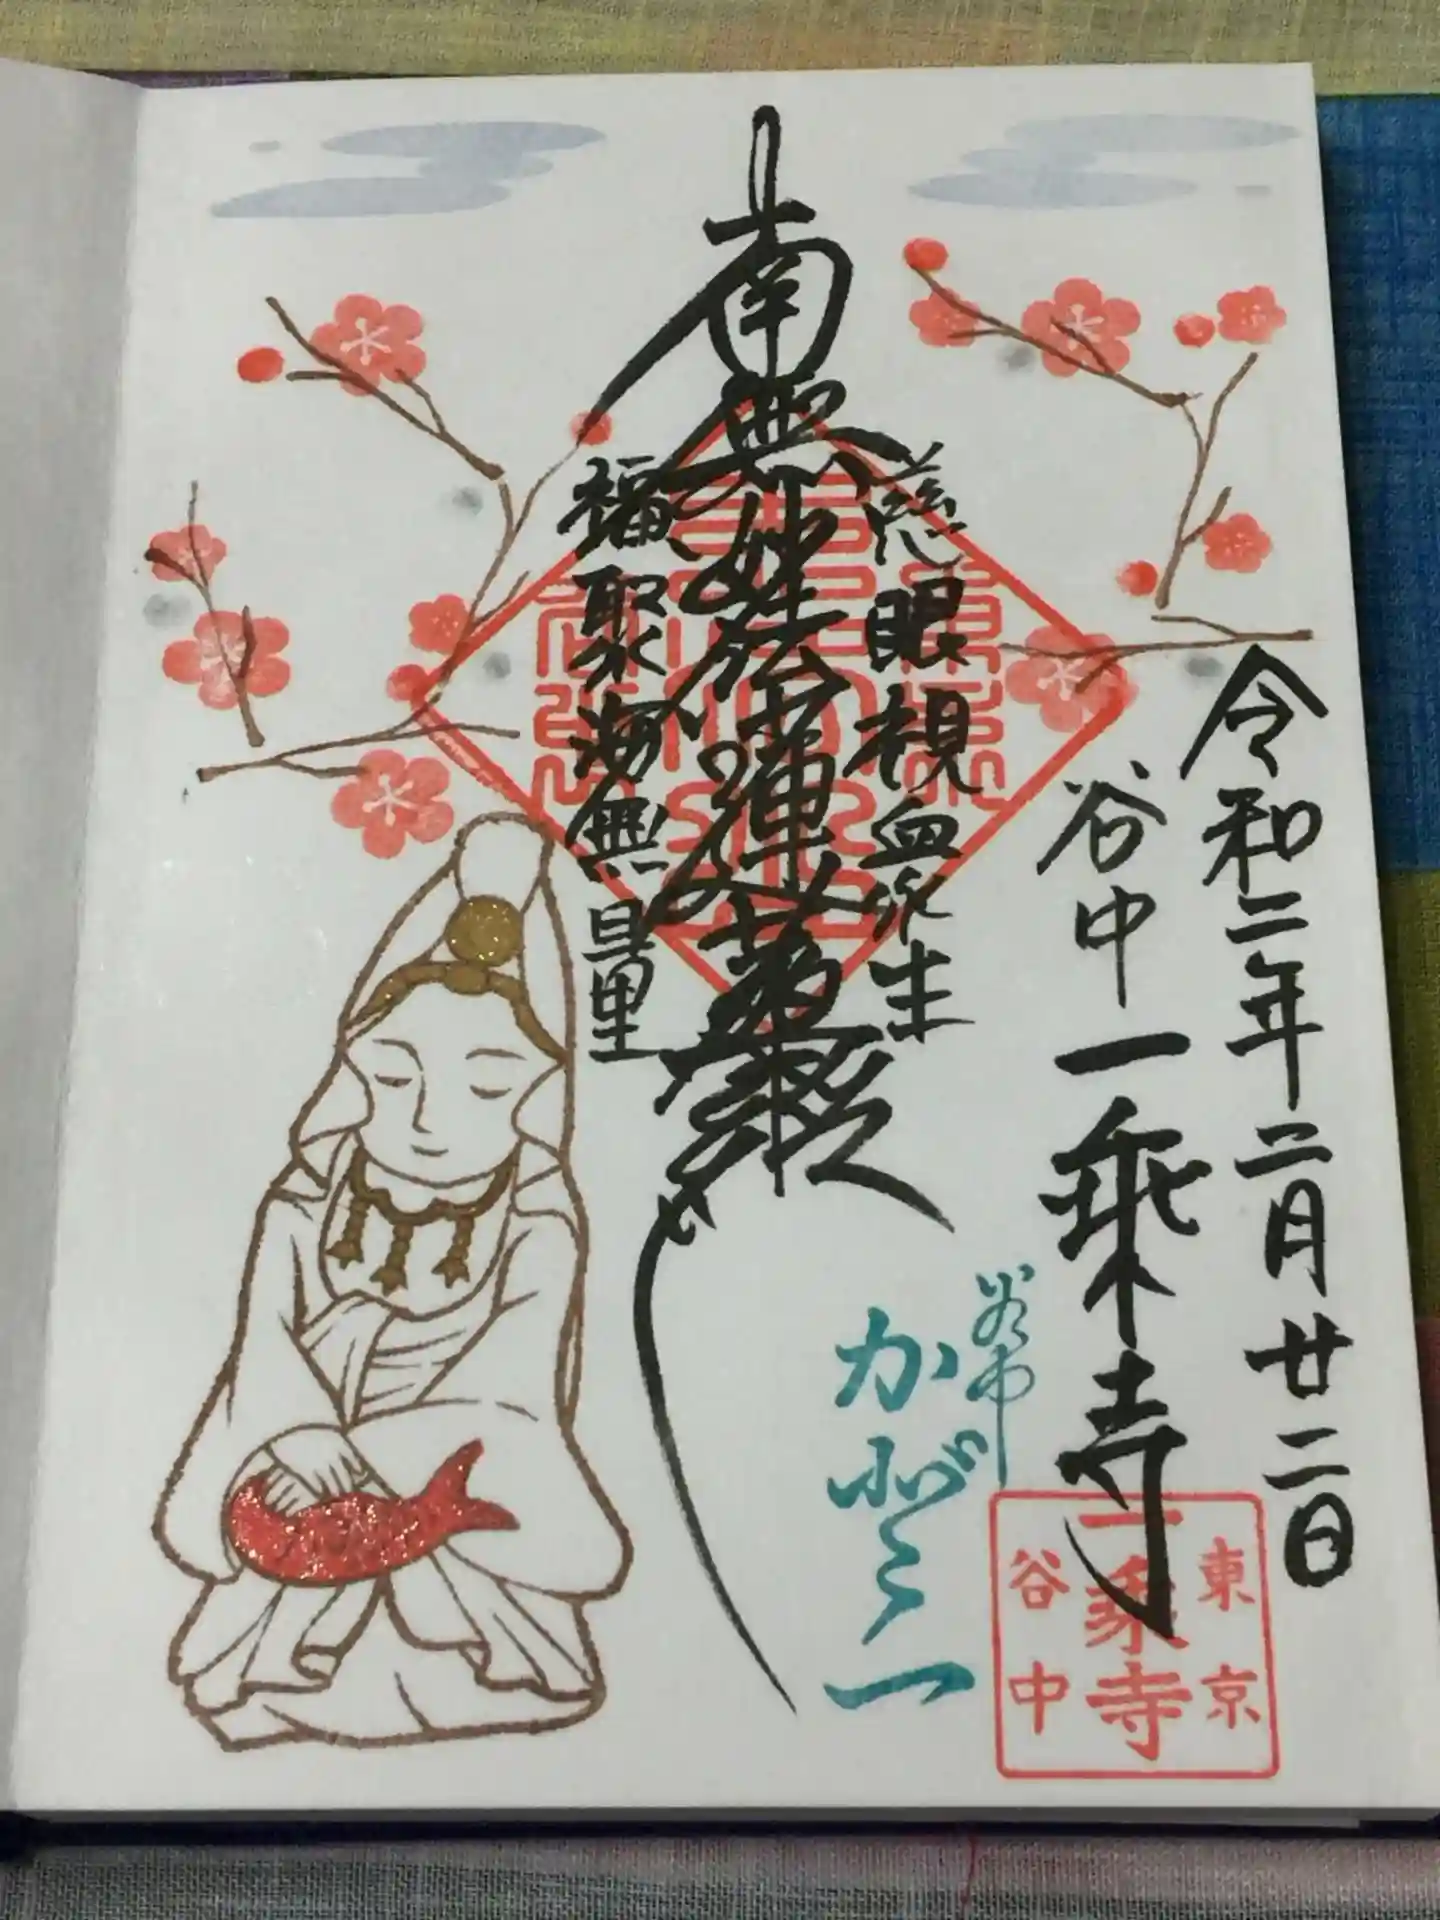 令和二年二月廿二日
谷中
一乗寺
慈眼視衆生
南無妙法蓮華経
福聚海無量
谷中
東京
一乗寺
谷中